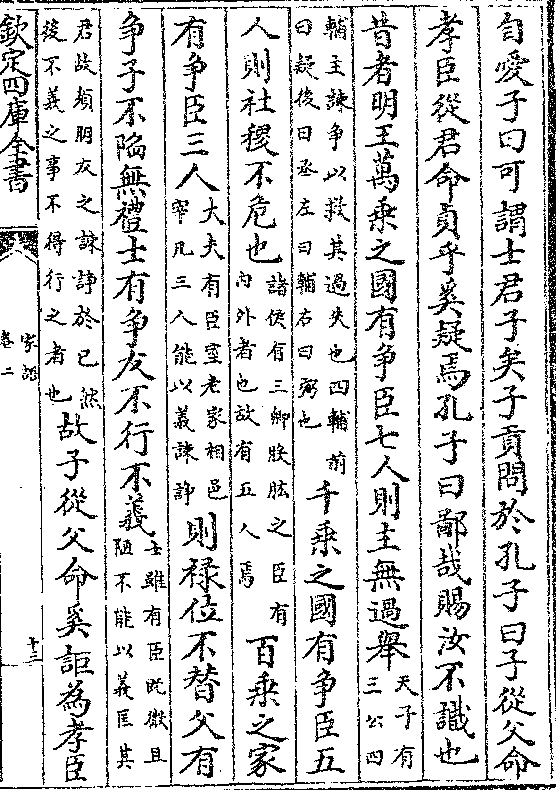 自愛子曰可謂士君子矣子貢問於孔子曰子從父命
孝臣從君命貞乎奚疑焉孔子曰鄙哉賜汝不識也
昔者明王萬乗之國有争臣七人則主無過舉天子有三公四
輔主諫争以救其過失也四輔前曰疑後曰丞左曰輔右曰弼也千乗之國有争臣五
人則社稷不危也諸侯有三卿股肱之臣有内外者也故有五人焉百乗之家
有争臣三人大夫有臣室老家相邑宰凡三人能以義諫諍則禄位不替父有
争子不陷無禮士有争友不行不義士雖有臣既微且陋不能以義匡其
君故須朋友之諫諍於已然後不義之事不得行之者也故子從父命奚詎為孝臣
欽定四庫全書
家語
卷二
十三